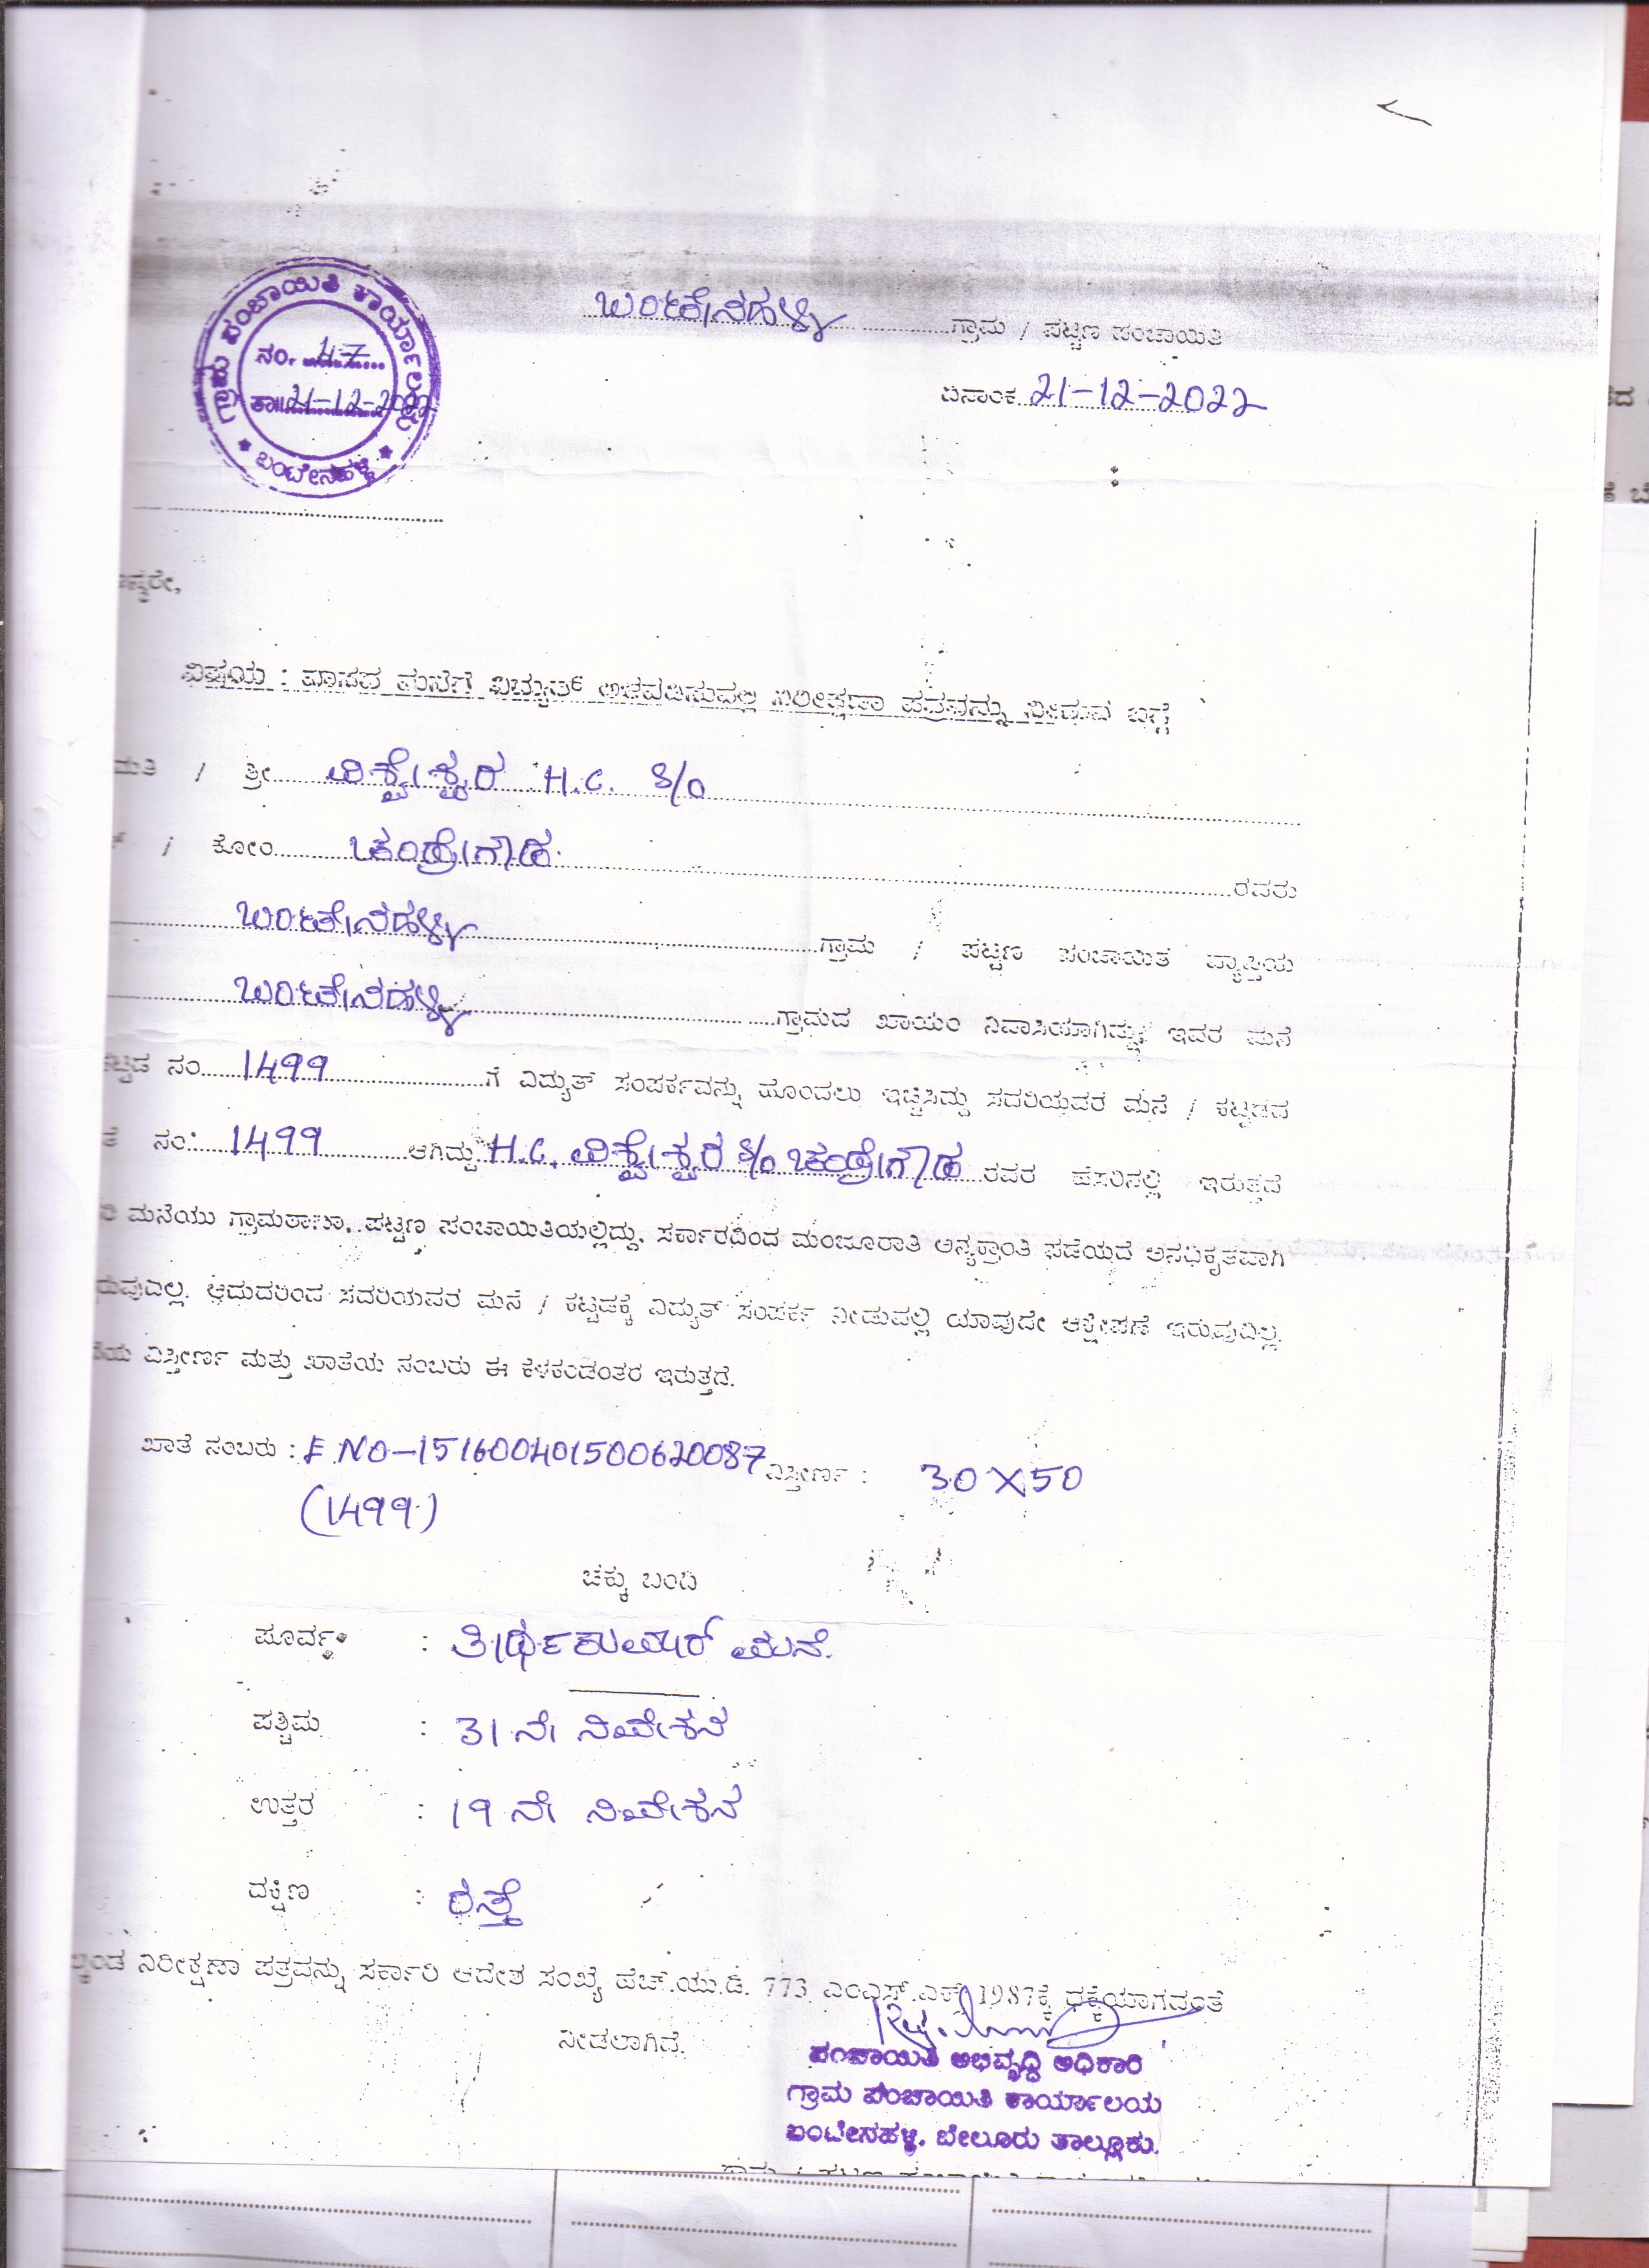 ಗ್ರಾಮ ಪಂಚಾಯಿತಿ ಕಾರ್ಯಾಲಯ
ನಂ. 47
ತಾ॥ 21-12-2022
ಬಂಟೇನಹಳ್ಳಿ
ಬಂಟೇನಹಳ್ಳಿ ಗ್ರಾಮ / ಪಟ್ಟಣ ಪಂಚಾಯಿತಿ
ದಿನಾಂಕ 21-12-2022
ವಿಷಯ : ವಾಸದ ಮನೆಗೆ ವಿದ್ಯುತ್ ಅಳವಡಿಸುವಲ್ಲಿ ನಿರೀಕ್ಷಣಾ ಪತ್ರವನ್ನು ನೀಡುವ ಬಗ್ಗೆ
ಮತಿ / ಶ್ರೀ ವಿಶ್ವೇಶ್ವರ H.C. S/o
/ ಕೋಂ ಚಂದ್ರೇಗೌಡ ರವರು
ಬಂಟೇನಹಳ್ಳಿ ಗ್ರಾಮ / ಪಟ್ಟಣ ಪಂಚಾಯಿತಿ ವ್ಯಾಪ್ತಿಯ
ಬಂಟೇನಹಳ್ಳಿ ಗ್ರಾಮದ ಖಾಯಂ ನಿವಾಸಿಯಾಗಿದ್ದು, ಇವರ ಮನೆ
ಕಟ್ಟಡ ನಂ 1499 ಗೆ ವಿದ್ಯುತ್ ಸಂಪರ್ಕವನ್ನು ಹೊಂದಲು ಇಚ್ಛಿಸಿದ್ದು ಸದರಿಯವರ ಮನೆ / ಕಟ್ಟಡದ
ನಂ: 1499 ಆಗಿದ್ದು H.C. ವಿಶ್ವೇಶ್ವರ S/o ಚಂದ್ರೇಗೌಡ ರವರ ಹೆಸರಿನಲ್ಲಿ ಇರುತ್ತದೆ
ಮನೆಯು ಗ್ರಾಮಠಾಣಾ, ಪಟ್ಟಣ ಪಂಚಾಯಿತಿಯಲ್ಲಿದ್ದು, ಸರ್ಕಾರದಿಂದ ಮಂಜೂರಾತಿ ಅನ್ಯಕ್ರಾಂತಿ ಪಡೆಯದೆ ಅನಧಿಕೃತವಾಗಿ
ರುವುದಿಲ್ಲ. ಆದುದರಿಂದ ಸದರಿಯವರ ಮನೆ / ಕಟ್ಟಡಕ್ಕೆ ವಿದ್ಯುತ್ ಸಂಪರ್ಕ ನೀಡುವಲ್ಲಿ ಯಾವುದೇ ಆಕ್ಷೇಪಣೆ ಇರುವುದಿಲ್ಲ.
ವಿಸ್ತೀರ್ಣ ಮತ್ತು ಖಾತೆಯ ನಂಬರು ಈ ಕೆಳಕಂಡಂತರ ಇರುತ್ತದೆ.
ಖಾತೆ ನಂಬರು : E NO-151600401500620087 ವಿಸ್ತೀರ್ಣ : 30 X 50
(1499)
ಚಕ್ಕು ಬಂದಿ
ಪೂರ್ವ : ತೀರ್ಥಕುಮಾರ್ ಮನೆ.
ಪಶ್ಚಿಮ : 31 ನೇ ನಿವೇಶನ
ಉತ್ತರ : 19 ನೇ ನಿವೇಶನ
ದಕ್ಷಿಣ : ರಸ್ತೆ
ನಿರೀಕ್ಷಣಾ ಪತ್ರವನ್ನು ಸರ್ಕಾರಿ ಆದೇಶ ಸಂಖ್ಯೆ ಹೆಚ್.ಯು.ಡಿ. 773 ಎಂಎನ್.ಎಕ್ಸ್ 1987ಕ್ಕೆ ಧಕ್ಕೆಯಾಗದಂತೆ
ನೀಡಲಾಗಿದೆ.
ಪಂಚಾಯಿತಿ ಅಭಿವೃದ್ಧಿ ಅಧಿಕಾರಿ
ಗ್ರಾಮ ಪಂಚಾಯಿತಿ ಕಾರ್ಯಾಲಯ
ಬಂಟೇನಹಳ್ಳಿ. ಬೇಲೂರು ತಾಲ್ಲೂಕು.